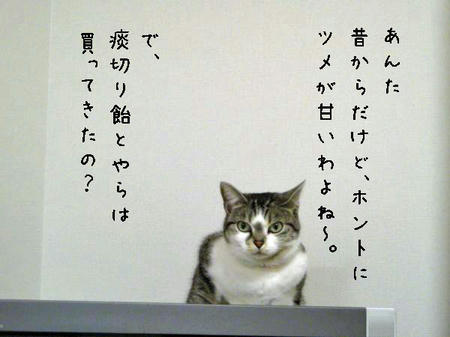 あんた
昔からだけど、ホントに
ツメが甘いわよね～。
で、
痰切り飴とやらは
買ってきたの？